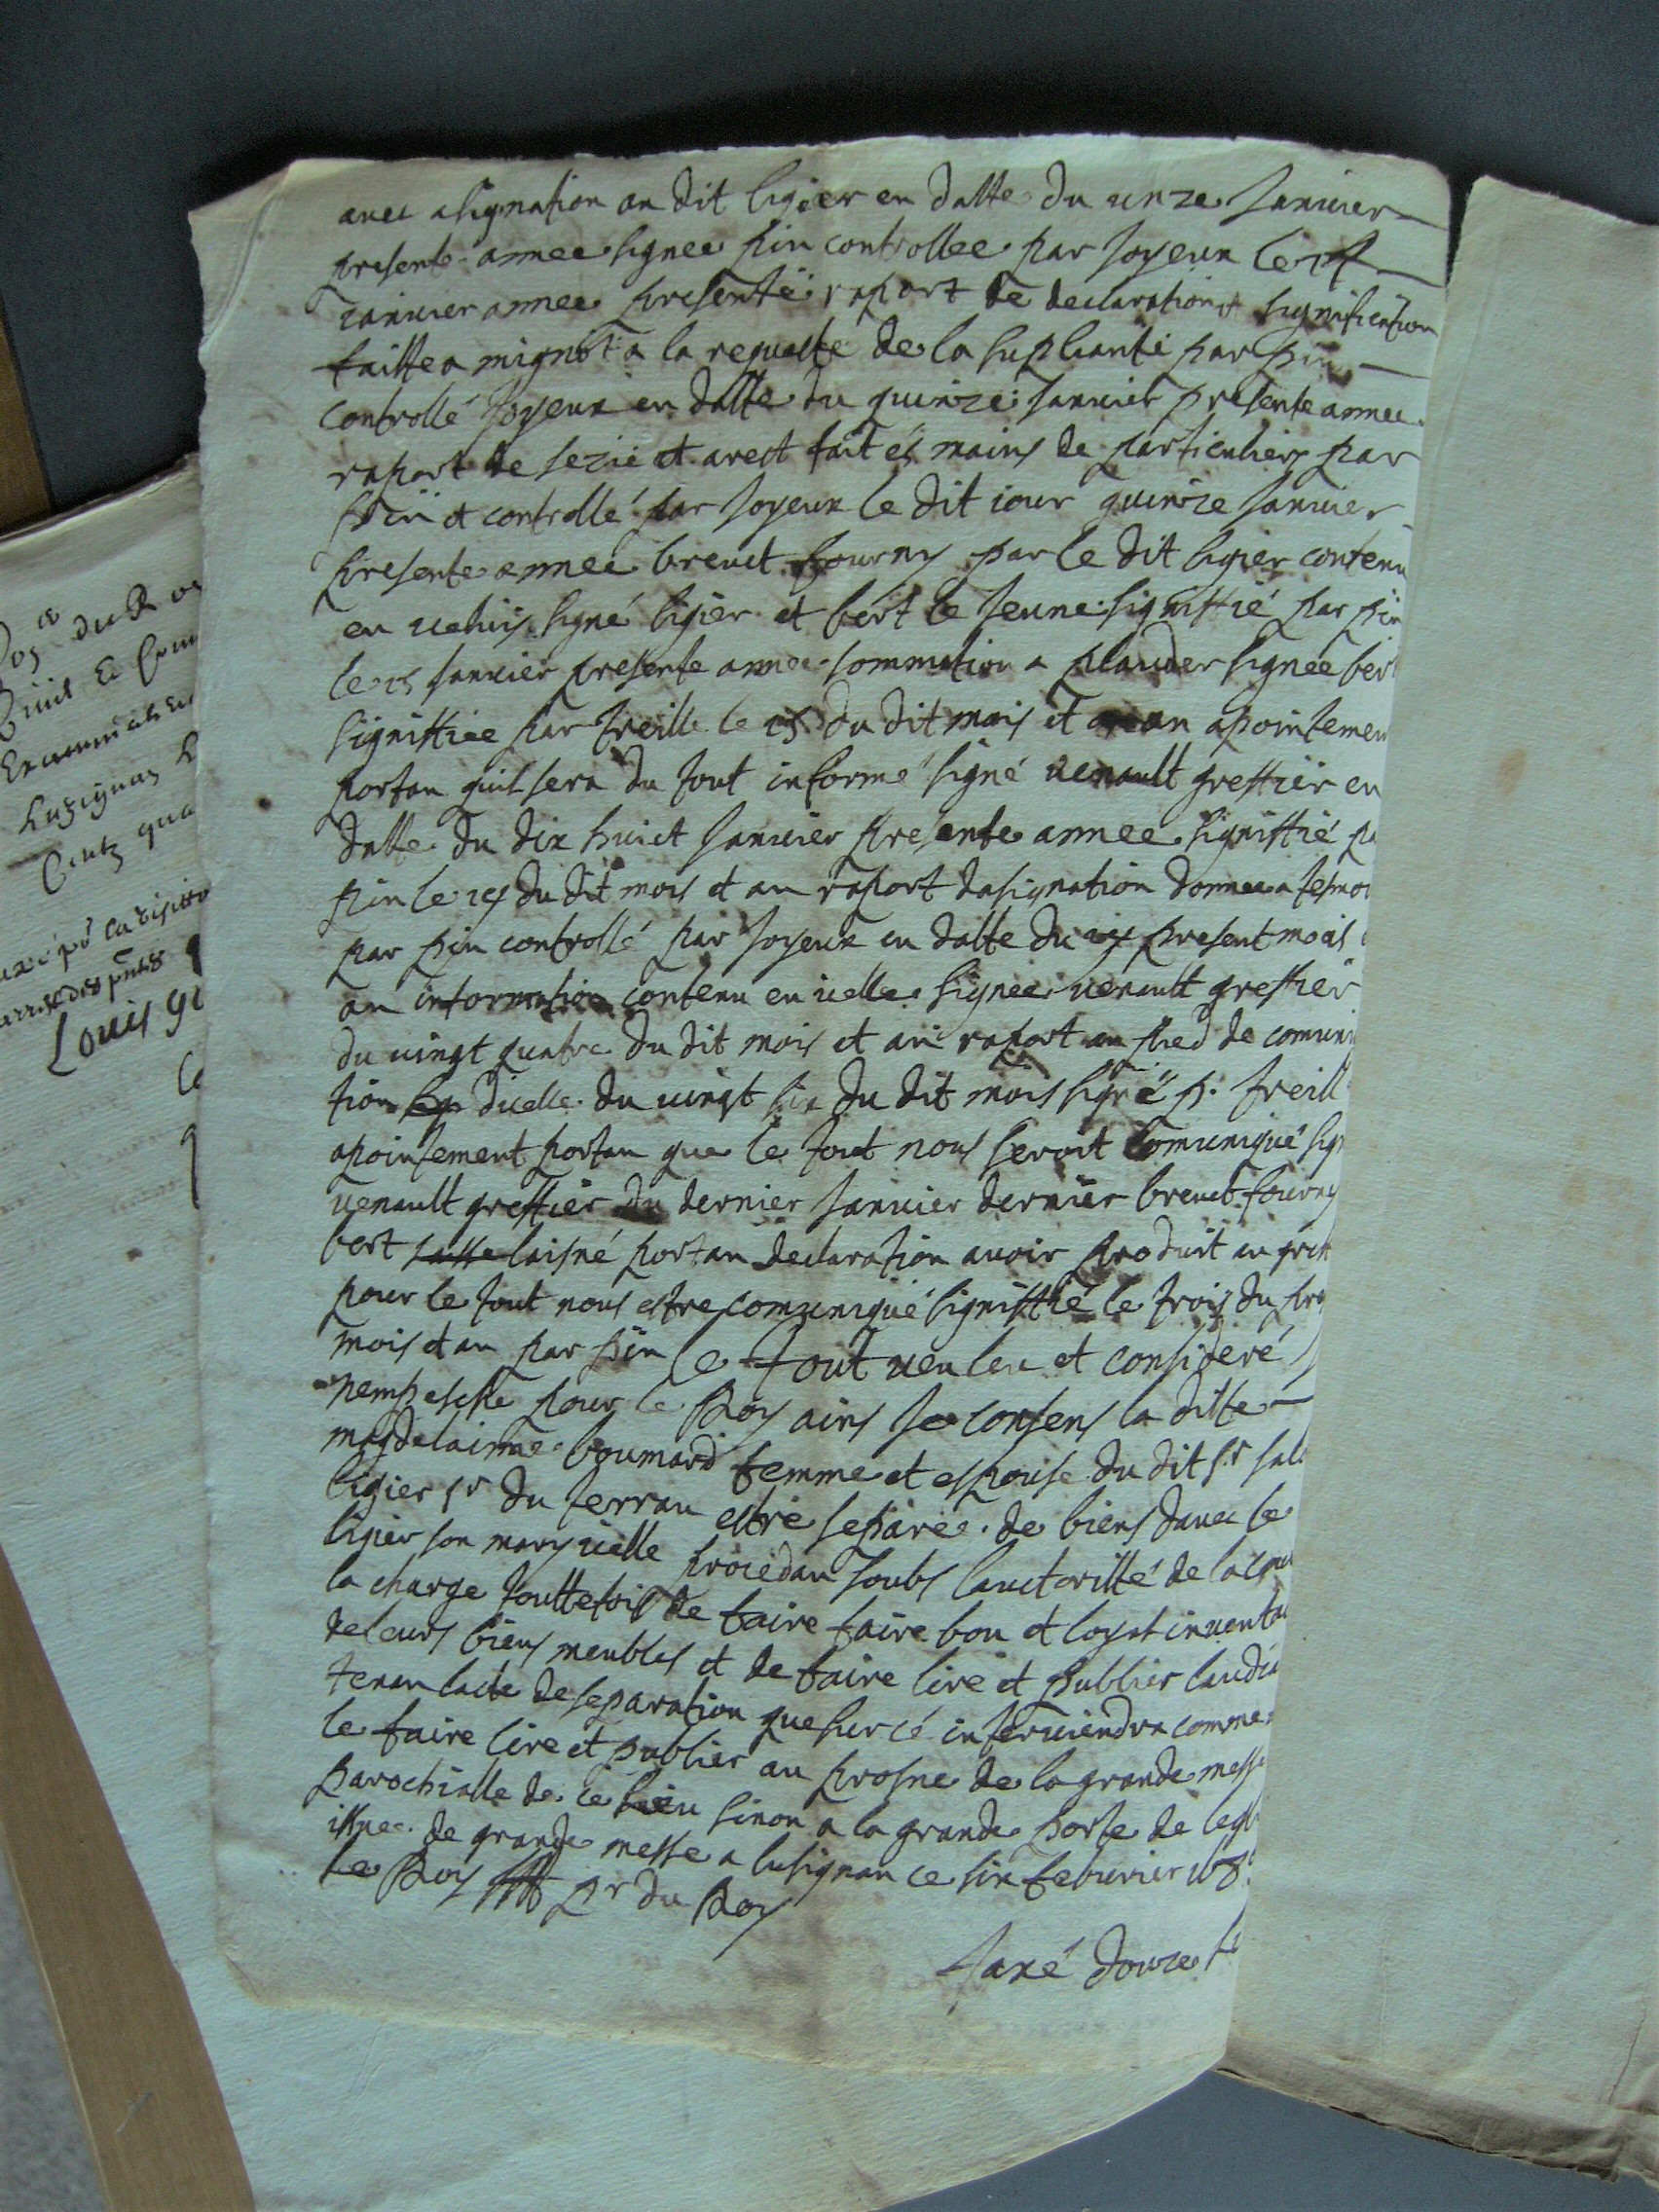 avec asignation au dit ligier en datte du unze Janvier
presente annee signee pin controllee par Joyeux le
ianvier annee presente raport de declaration signification
faitte a mignot a la requeste de la supliante par pin
controllé Joyeux en datte du quinze Janvier presente annee
raport de sezie et arest fait es mains de particuliers par
pin et controllé par Joyeux le dit iour quinze Janvier
presente annee brevet fourny par le dit ligier contenu
en iceluy signé ligier et bert le Jeune signiffié par pin
le 15 Janvier presente annee sommation a plaider signee ber
signiffiee par treille le 15 du dit mois et an apointemen
portan quil sera du tout informé signé venault greffier en
datte du dix huict Janvier presente annee signiffié pa
pin le 19 du dit mois et an raport dasignation donnee a tesmoi
par pin controllé par Joyeux en datte du present mois
an information contenu en icelle signee venault greffier
du vingt quatre du dit mois et an raport au pied de comuni
tion dicelle du vingt six du dit mois signé p. treill
apointement portan que le tout nous seroit comuniqué sig
venault greffier du dernier Janvier dernier brevet fourny
bert laisné portan declaration avoir produit au gref
pour le tout nous estre comuniqué signiffié le trois du pre
mois et an par pin le tout veu leu et consideré
nempesche pour le Roy ains Je consens la ditte
magdelainne boumard femme et espouse du dit sr
ligier sr du terrau estre separee de biens davec le
ligier son mary icelle procedan soubs lauctoritté de la cou
la charge touttefois de faire faire bon et loyal inventai
de leurs biens meubles et de faire lire et publier laudia
tenan lacte de separation que sur cé interviendra comme
le faire lire et publier au prosne de la grande messe
parochialle de ce lieu sinon a la grande porte de legl
issue de grande messe a lusignan ce six febvrier 168
le Roy pr du Roy
taxé douze
du R
Examinateu
Luzignan
Centz qua
Louis